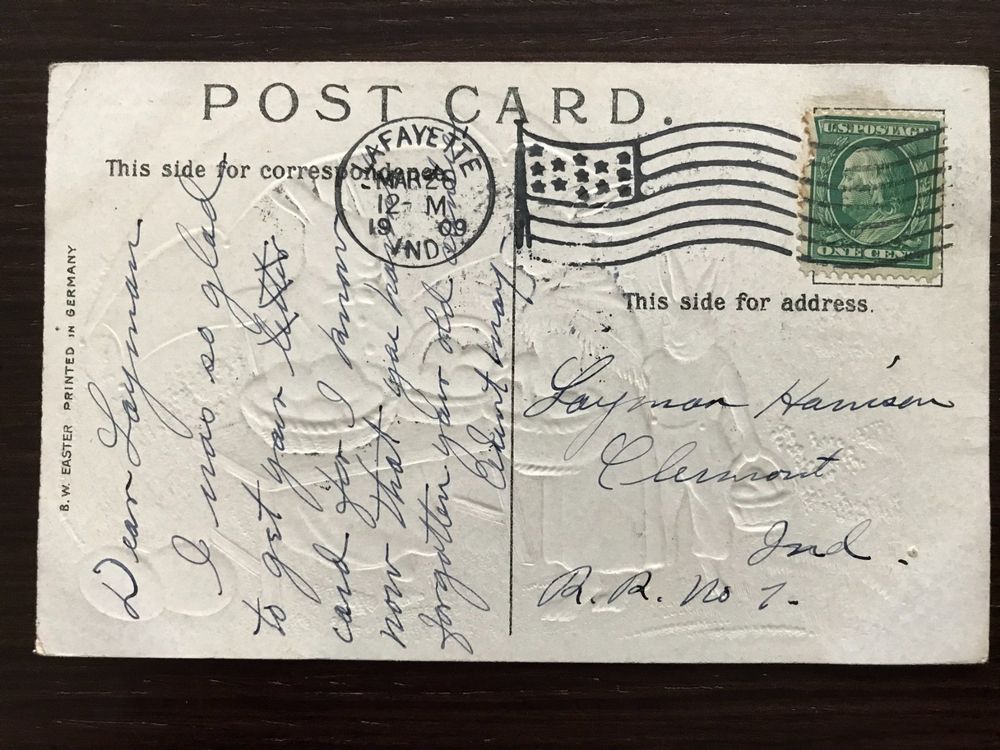 POST CARD.
This side for correspondence
LAFAYETTE
MAR
12- M
1909
IND.
U.S. POSTAGE
ONE CENT
This side for address.
B. W. EASTER PRINTED IN GERMANY
Dear Layman
I was so glad
to get your letter
card for I know
now that you have
forgotten your old
Aunt May.
Layman Harrison
Clermont
Ind.
R. R. No 1.